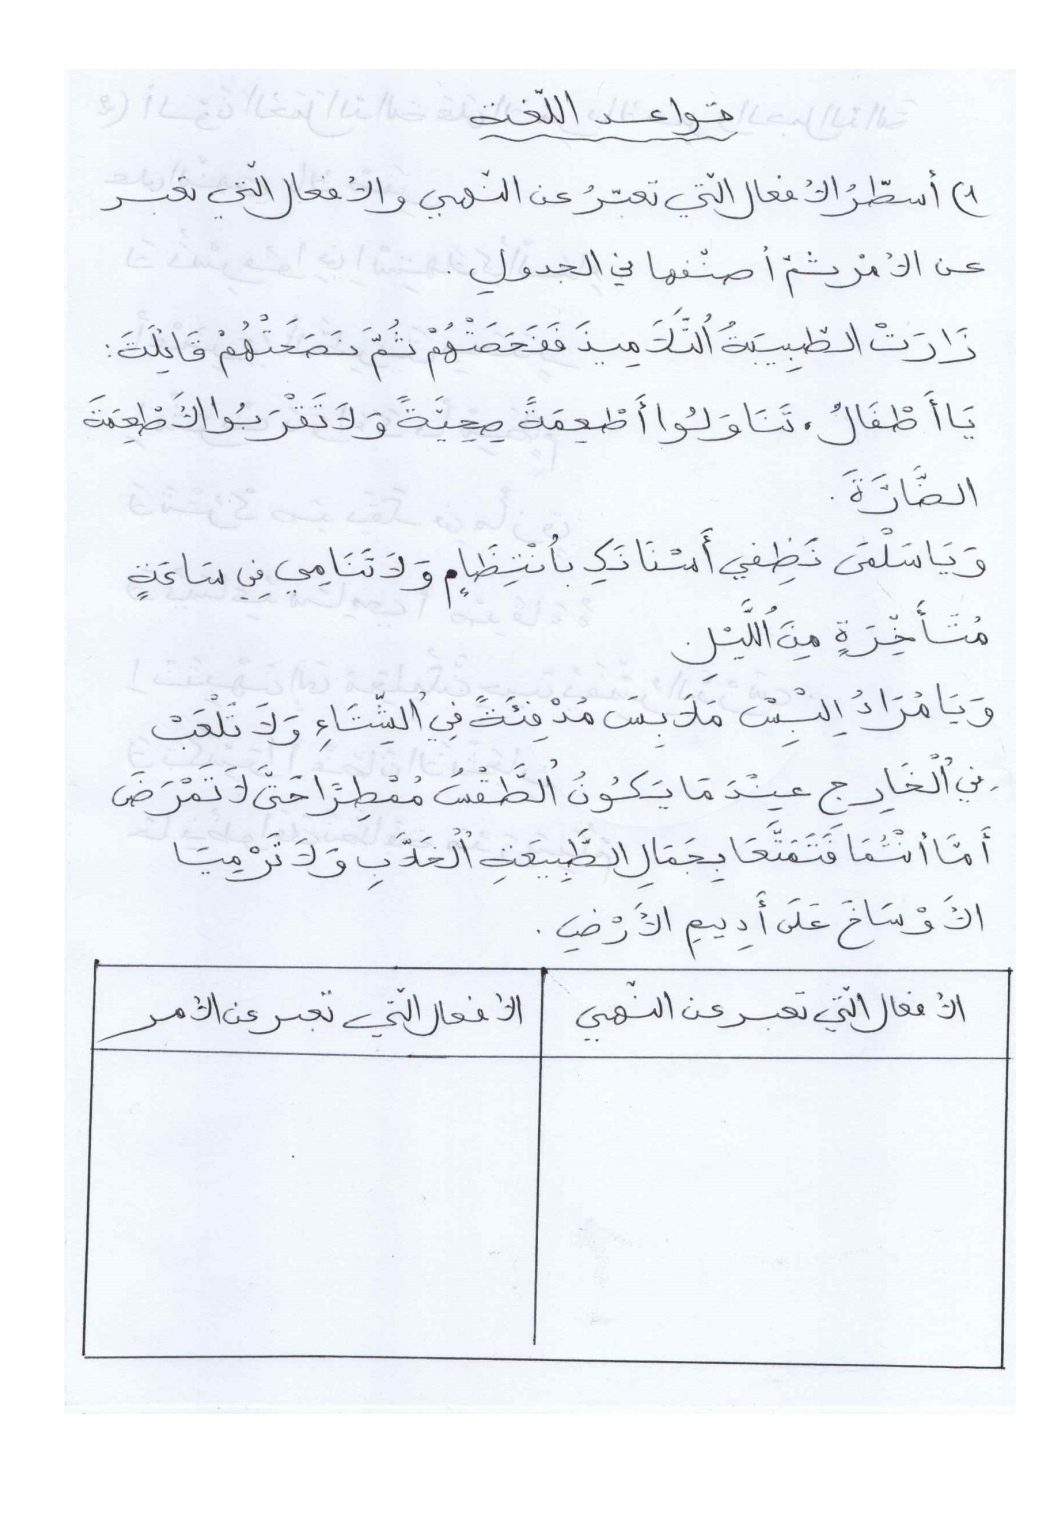 قواعد اللّغة
1) أسطّرُ الأفعال الّتي تعبّرُ عن النّهي والأفعال الّتي تعبر
عن الأمْر ثمّ أصنّفها في الجدول.
زَارَتْ الطّبِيبَةُ اُلتَّلَامِيذَ فَفَحَصَتْهُمْ ثُمَّ نَصَحَتْهُمْ قَائِلَةً:
يَا أَطْفَالُ، تَنَاوَلُوا أَطْعِمَةً صِحِيَّةً وَلَا تَقْرَبُوا الأَطْعِمَةَ
الضَّارَّةَ.
وَيَا سَلْمَى نَظِفي أَسْنَانَكِ بِاُنْتِظَامٍ وَلَا تَنَامِي فِي سَاعَةٍ
مُتَأَخِّرَةٍ مِنَ اُللَّيْلِ.
وَيَا مُرَادُ اِلْبِسْ مَلَابِسَ مُدْفِئَةً فِي اُلشِّتَاءِ وَلَا تَلْعَبْ
فِي اُلْخَارِجِ عِنْدَ مَا يَكُونُ اُلطَّقْسُ مُمْطِرًا حَتَّى لَا تَمْرَضَ
أَمَّا اُنْتُمَا فَتَمَتَّعَا بِجَمَالِ الطَّبِيعَةِ اُلْخَلَّابِ وَلَا تَرْمِيَا
الأَوْسَاخَ عَلَى أَدِيمِ الأَرْضِ.
الأفعال الّتي تعبر عن النّهي
الأفعال الّتي تعبر عن الأمر